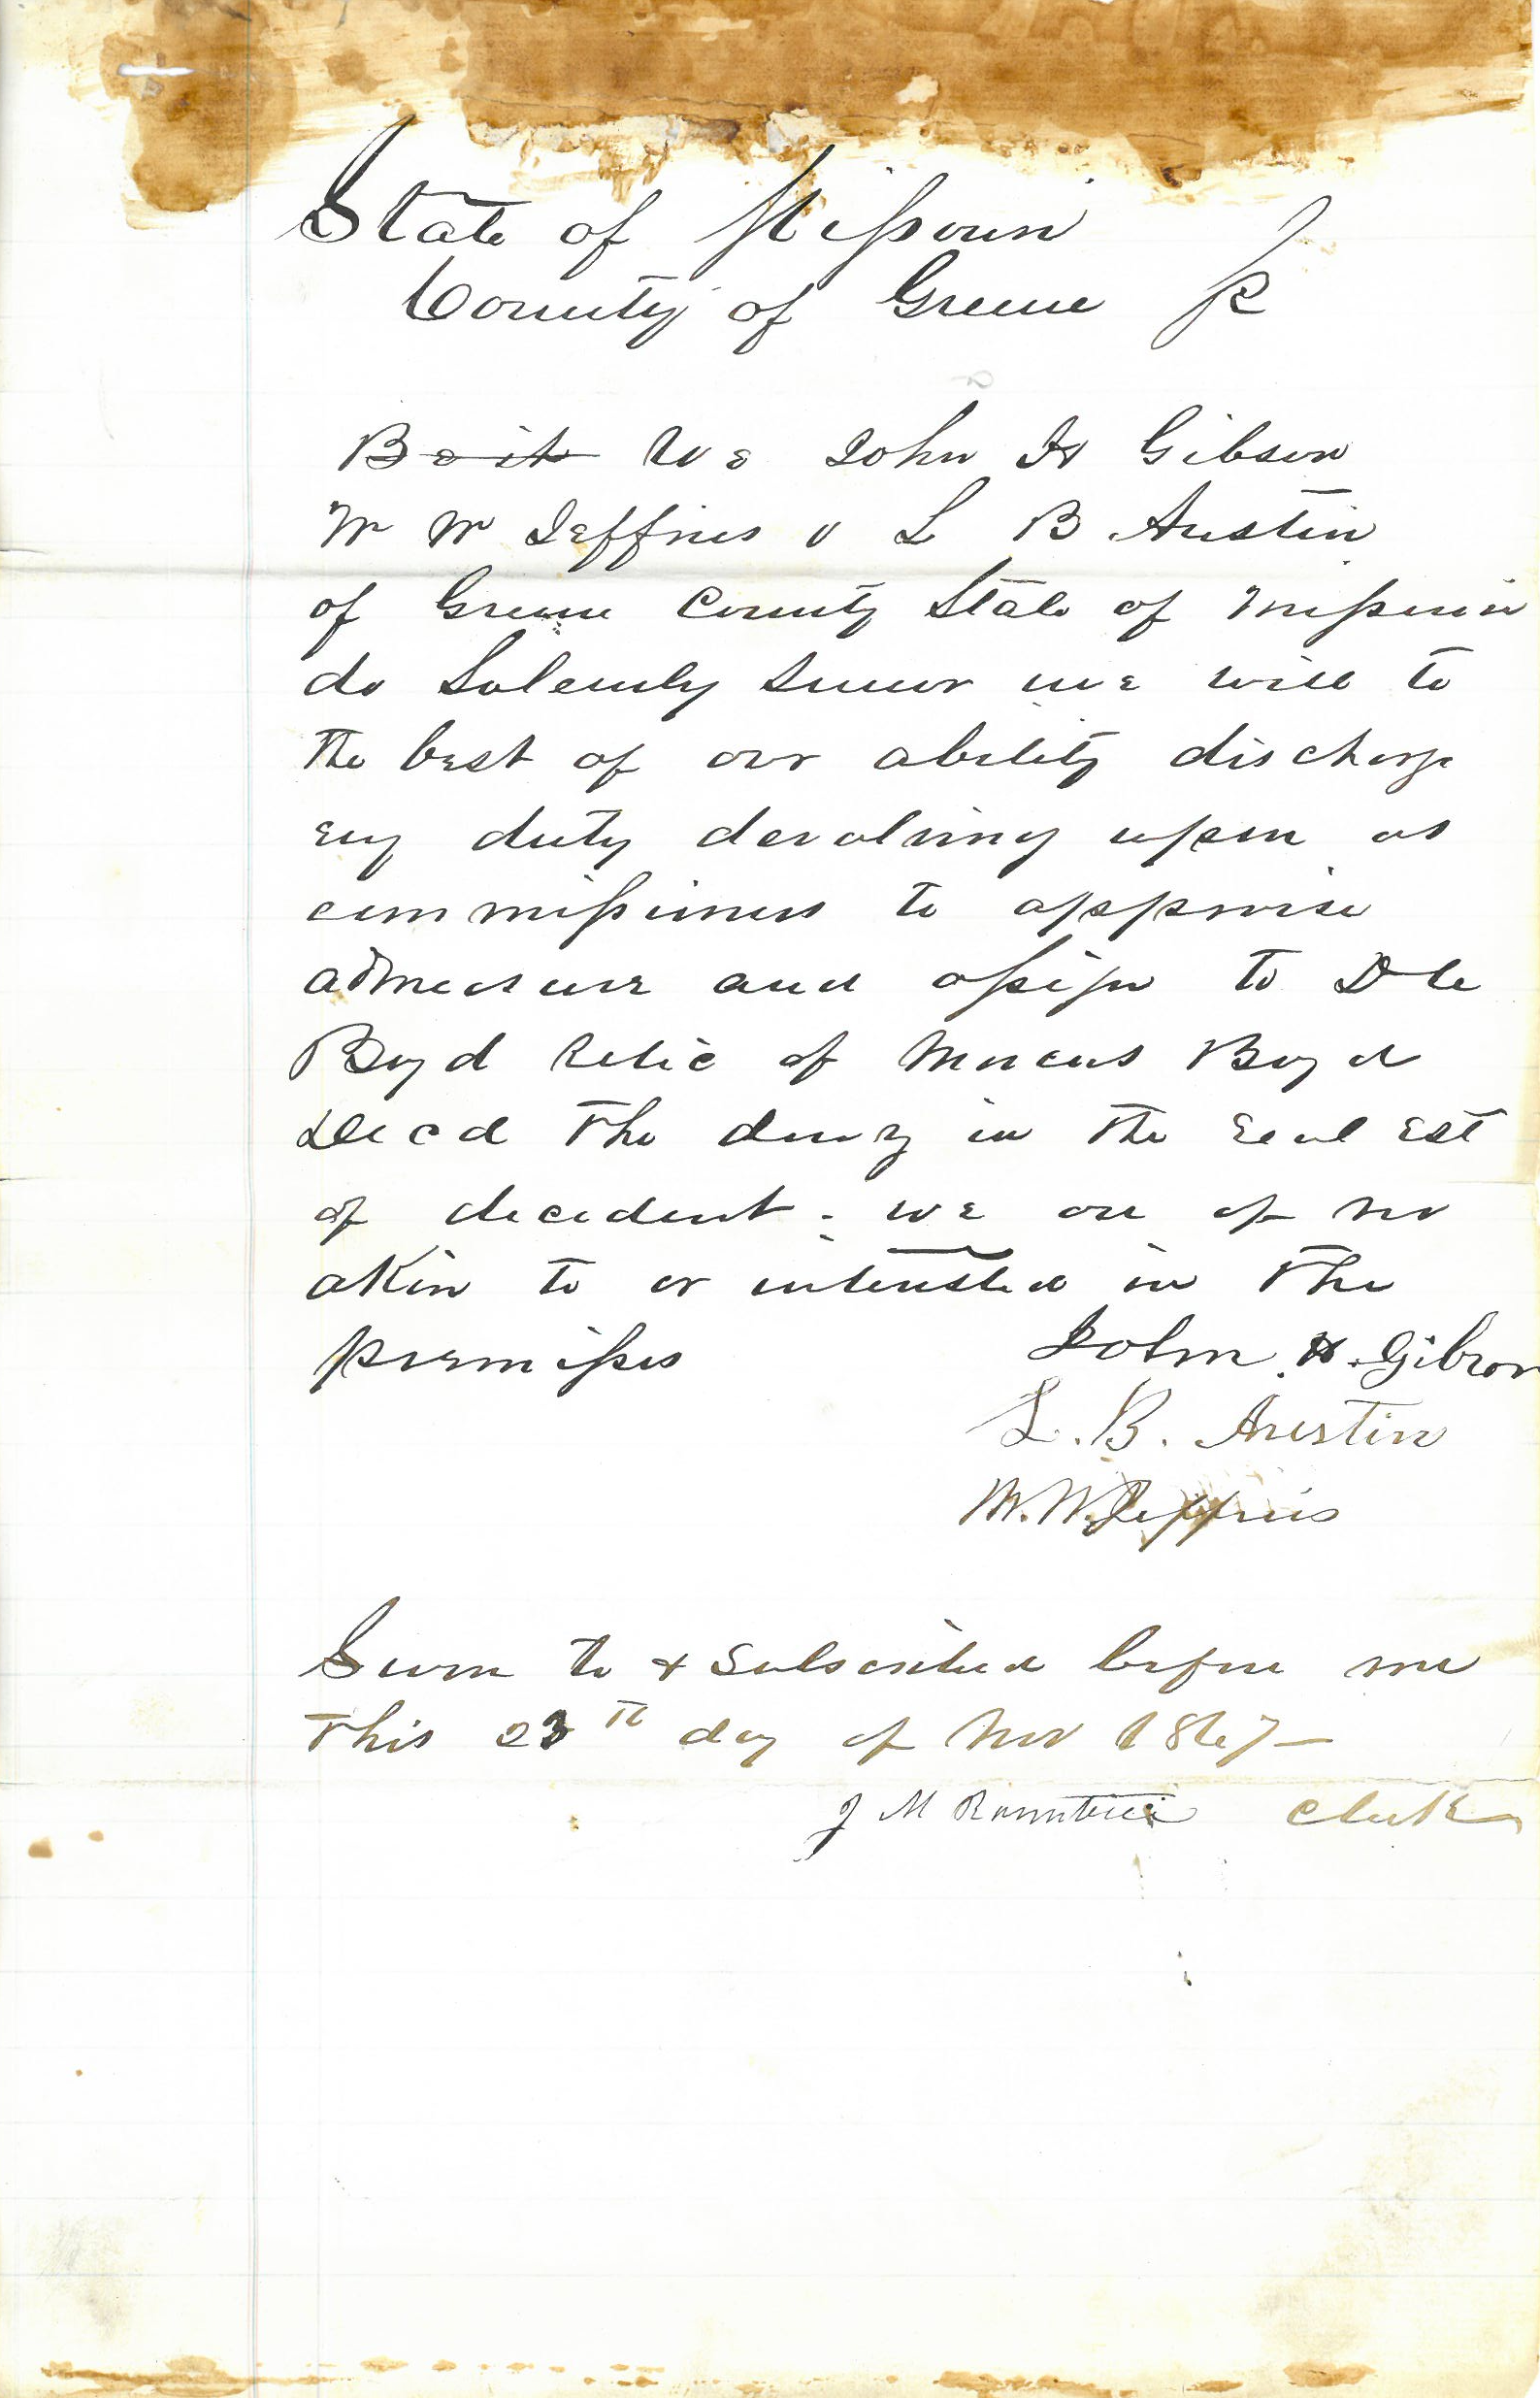 State of Missouri
County of Greene ss
~~Be it~~ We John H Gibson
W W Jeffries & L B Austin
of Greene County State of Missouri
do Solemnly Swear we will to
the best of our ability discharge
evy duty devolving upon as
commissioners to appraise
admeasure and assign to
Boyd relic of Marcus Boyd
Decd the in the real est
of decedent - we are of no
akin to or interested in the
premises John H. Gibson
L. B. Austin
W. W. Jeffries
Sworn to & Subscribed before me
this 23th day of Nov 1867-
J M Rountree Clerk